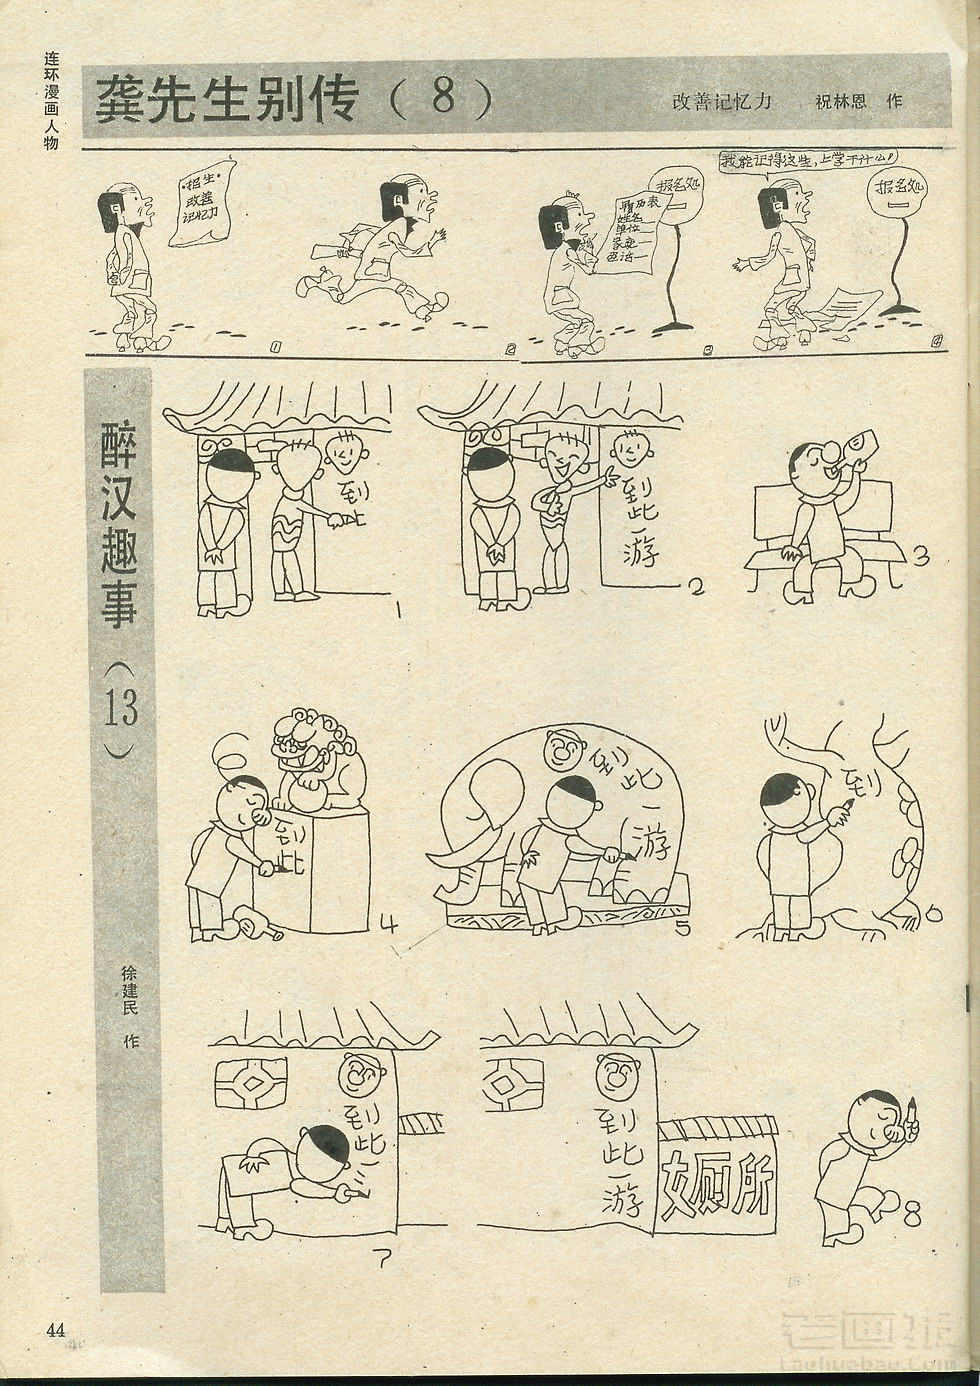 连环漫画人物
龚先生别传（8）
改善记忆力 祝林恩 作
·招生·
改善
记忆力
1
2
报名处
履历表
姓名
单位
家庭一
3
我能记得这些,上学干什么!
报名处
4
醉汉趣事（13）
徐建民 作
到
1
到此一游
2
3
到此
4
到此一游
5
到
6
到此一
7
到此一游
女厕所
8
44
老画报
Laohuabao.Com